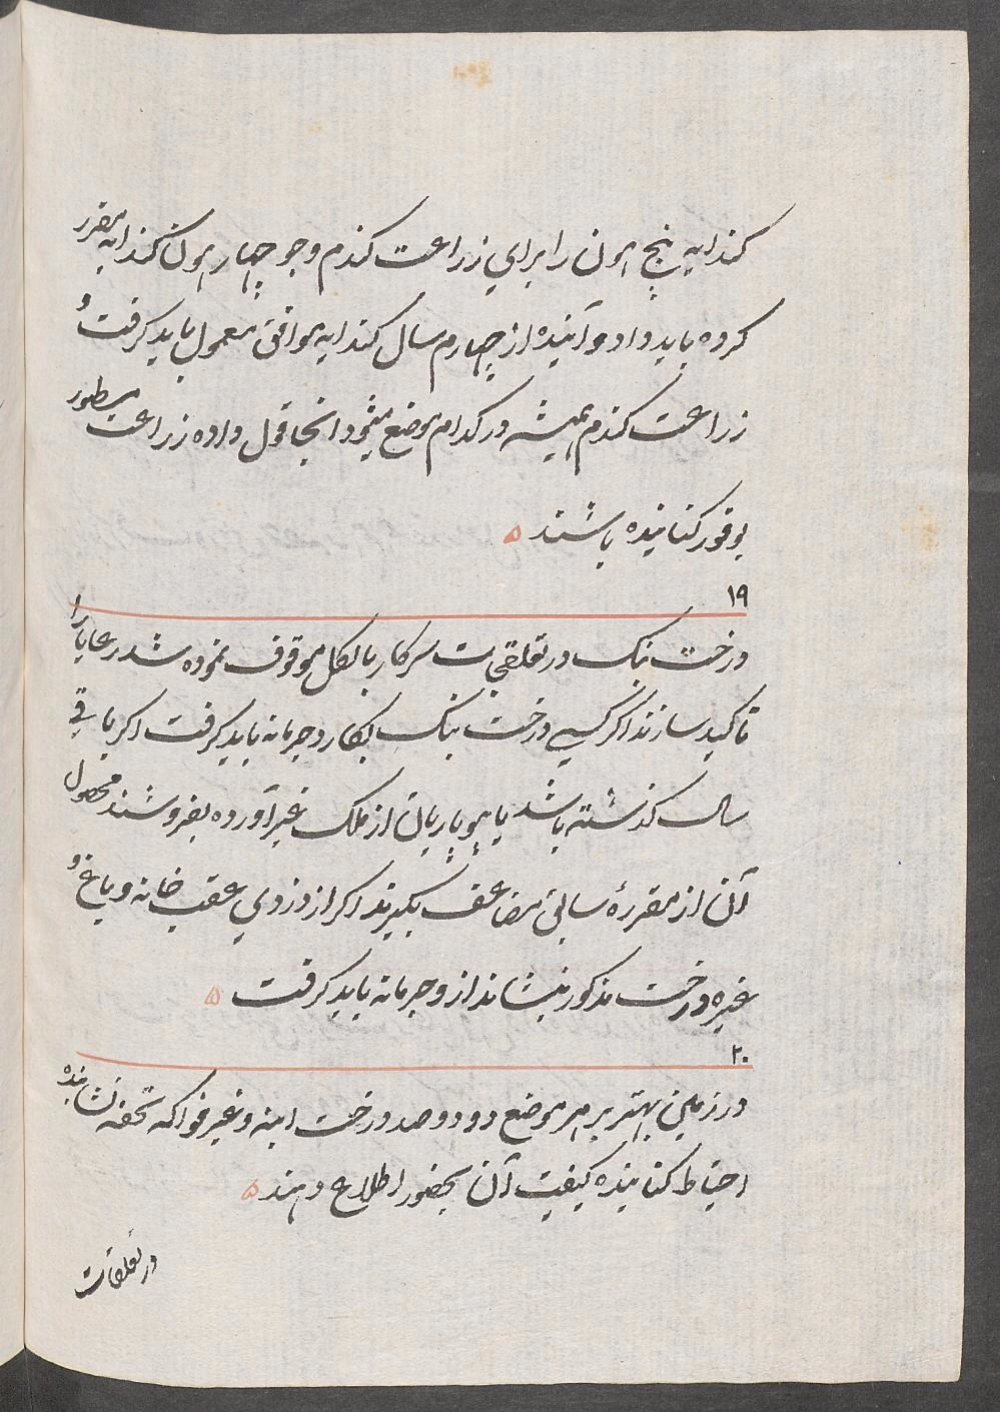 کندایه پنج هون را برای زراعت کندم و جو چهار هون کندایه مقرر
کرده باید داد و آینده از چهارم سال کندایه موافق معمول باید کرفت و
زراعت کندم همیشه در کدام موضع میشود انجا قول داده زراعت مسطور
بوفور کنانیده باشند ۵
۱۹
درخت بنک در تعلقجات سرکار بالکل موقوف نموده شد رعایا را
تاکید سازند اکر کسی درخت بنک بکارد جرمانه باید کرفت اکر باقی
سال کذشته باشد یا بیوپاریان از ملک غیر آورده بفروشند محصول
آن از مقررهٔ سابق مضاعف بکیرند اکر از دزدی عقب خانه و باغ و
غیره درخت مذکور بنشاند ازو جرمانه باید کرفت ۵
۲۰
در زمین بهتر بر هر موضع دو دو صد درخت انبه و غیر فواکه تحفه نشانیده
احتیاط کنانیده کیفیت آن بحضور اطلاع دهند ۵
در تعلقات